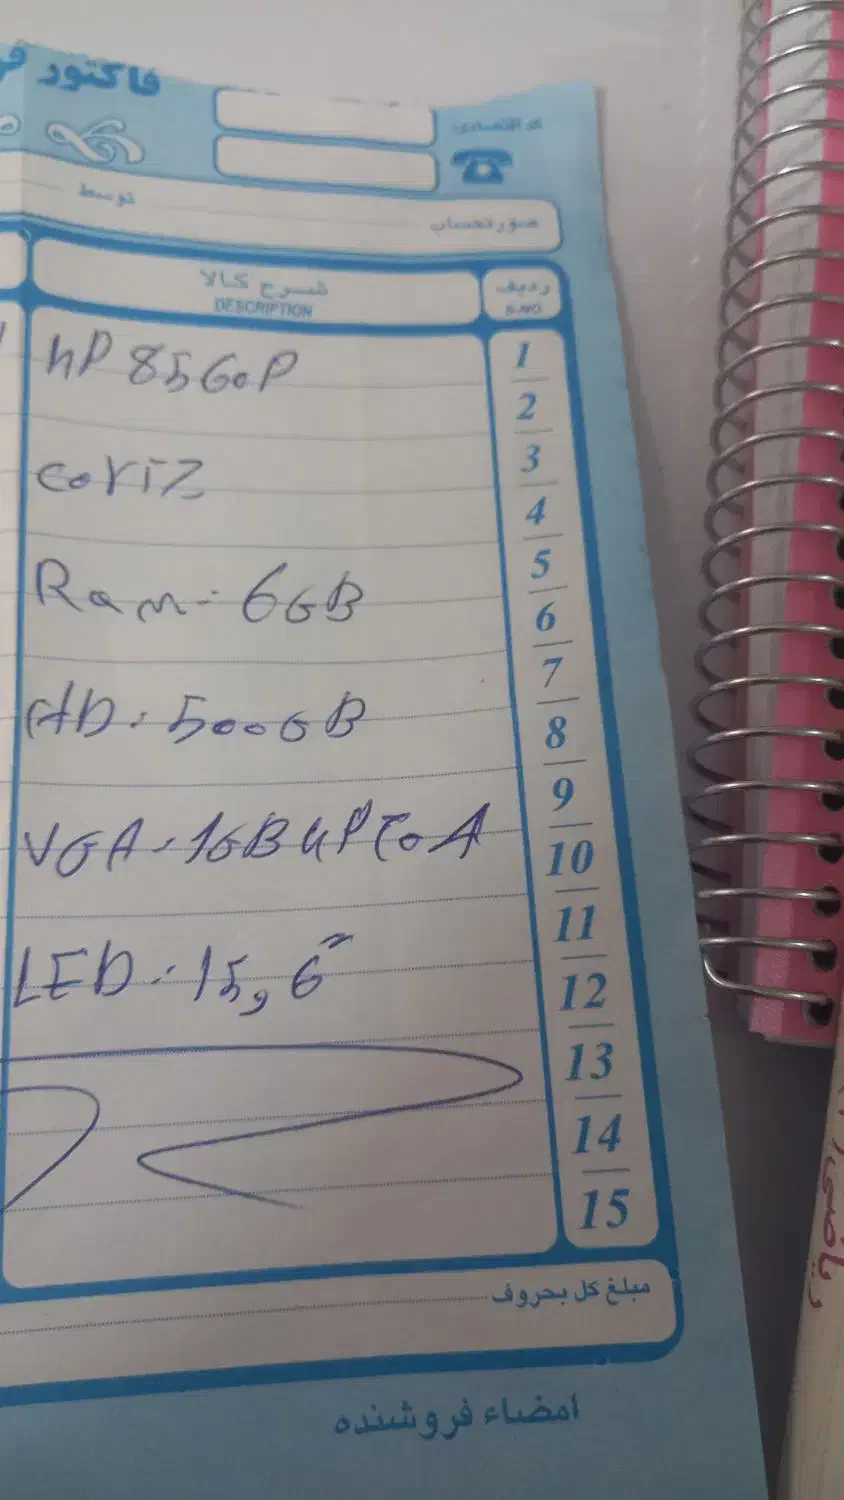 فاکتور
کد اقتصادی:
توسط
صورتحساب
شرح کالا
DESCRIPTION
ردیف
S.NO
1
hP 8560P
2
3
cori7
4
5
Ram: 6GB
6
7
HD: 500GB
8
9
VGA: 1GB UPToA
10
11
LED: 15,6"
12
13
14
15
مبلغ کل بحروف
امضاء فروشنده
ریاضی